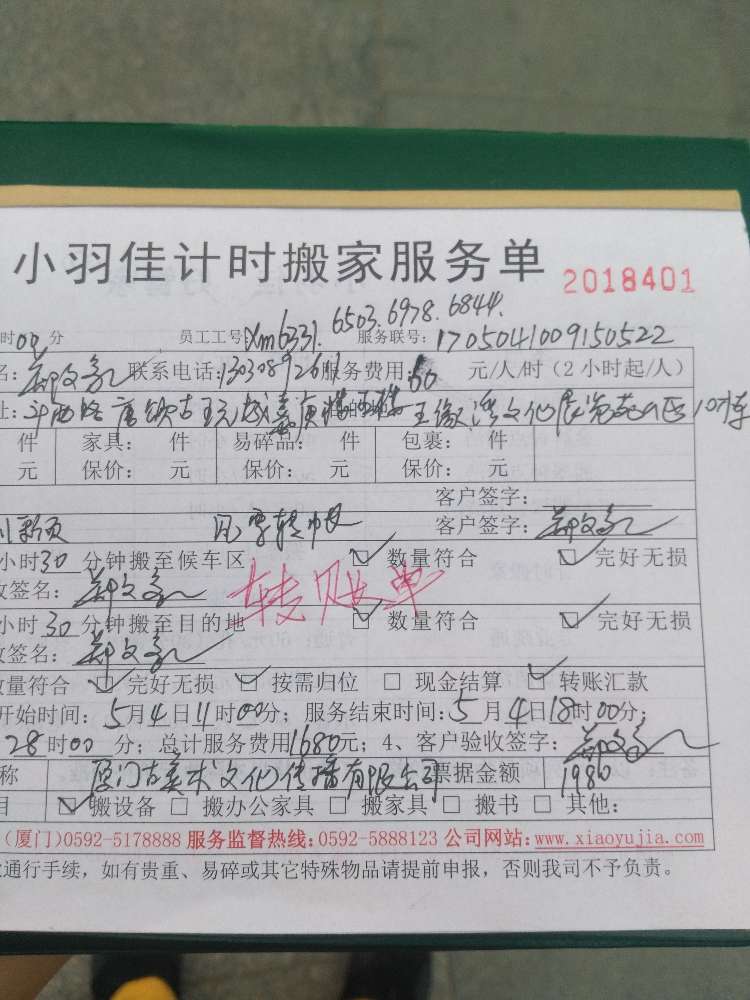 小羽佳计时搬家服务单 2018401
时00分 员工工号:Xm6331.6503.6978.6844. 服务联号:1705041009150522
名: 联系电话: 服务费用:60 元/人/时（2小时起/人）
址:
件 家具: 件 易碎品: 件 包裹: 件
元 保价: 元 保价: 元 保价: 元
客户签字:
客户签字:
小时30分钟搬至候车区 ☑ 数量符合 ☑ 完好无损
收签名: 转账单
小时30分钟搬至目的地 ☑ 数量符合 ☑ 完好无损
收签名:
数量符合 ☑ 完好无损 ☑ 按需归位 □ 现金结算 ☑ 转账汇款
开始时间: 5月4日11时00分; 服务结束时间: 5月4日18时00分;
28时00分; 总计服务费用1680元; 4、客户验收签字:
称 厦门古美术文化传播有限公司 票据金额 1980
目 ☑ 搬设备 □ 搬办公家具 □ 搬家具 □ 搬书 □ 其他:
(厦门)0592-5178888 服务监督热线:0592-5888123 公司网站:www.xiaoyujia.com
通行手续，如有贵重、易碎或其它特殊物品请提前申报，否则我司不予负责。